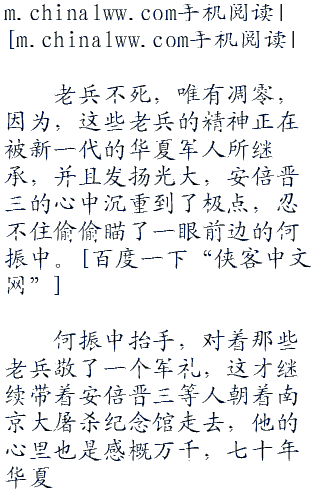 m.chinalww.com手机阅读|
[m.chinalww.com手机阅读|
老兵不死，唯有凋零，
因为，这些老兵的精神正在
被新一代的华夏军人所继
承，并且发扬光大，安倍晋
三的心中沉重到了极点，忍
不住偷偷瞄了一眼前边的何
振中。[百度一下“侠客中文
网”]
何振中抬手，对着那些
老兵敬了一个军礼，这才继
续带着安倍晋三等人朝着南
京大屠杀纪念馆走去，他的
心里也是感概万千，七十年
华夏